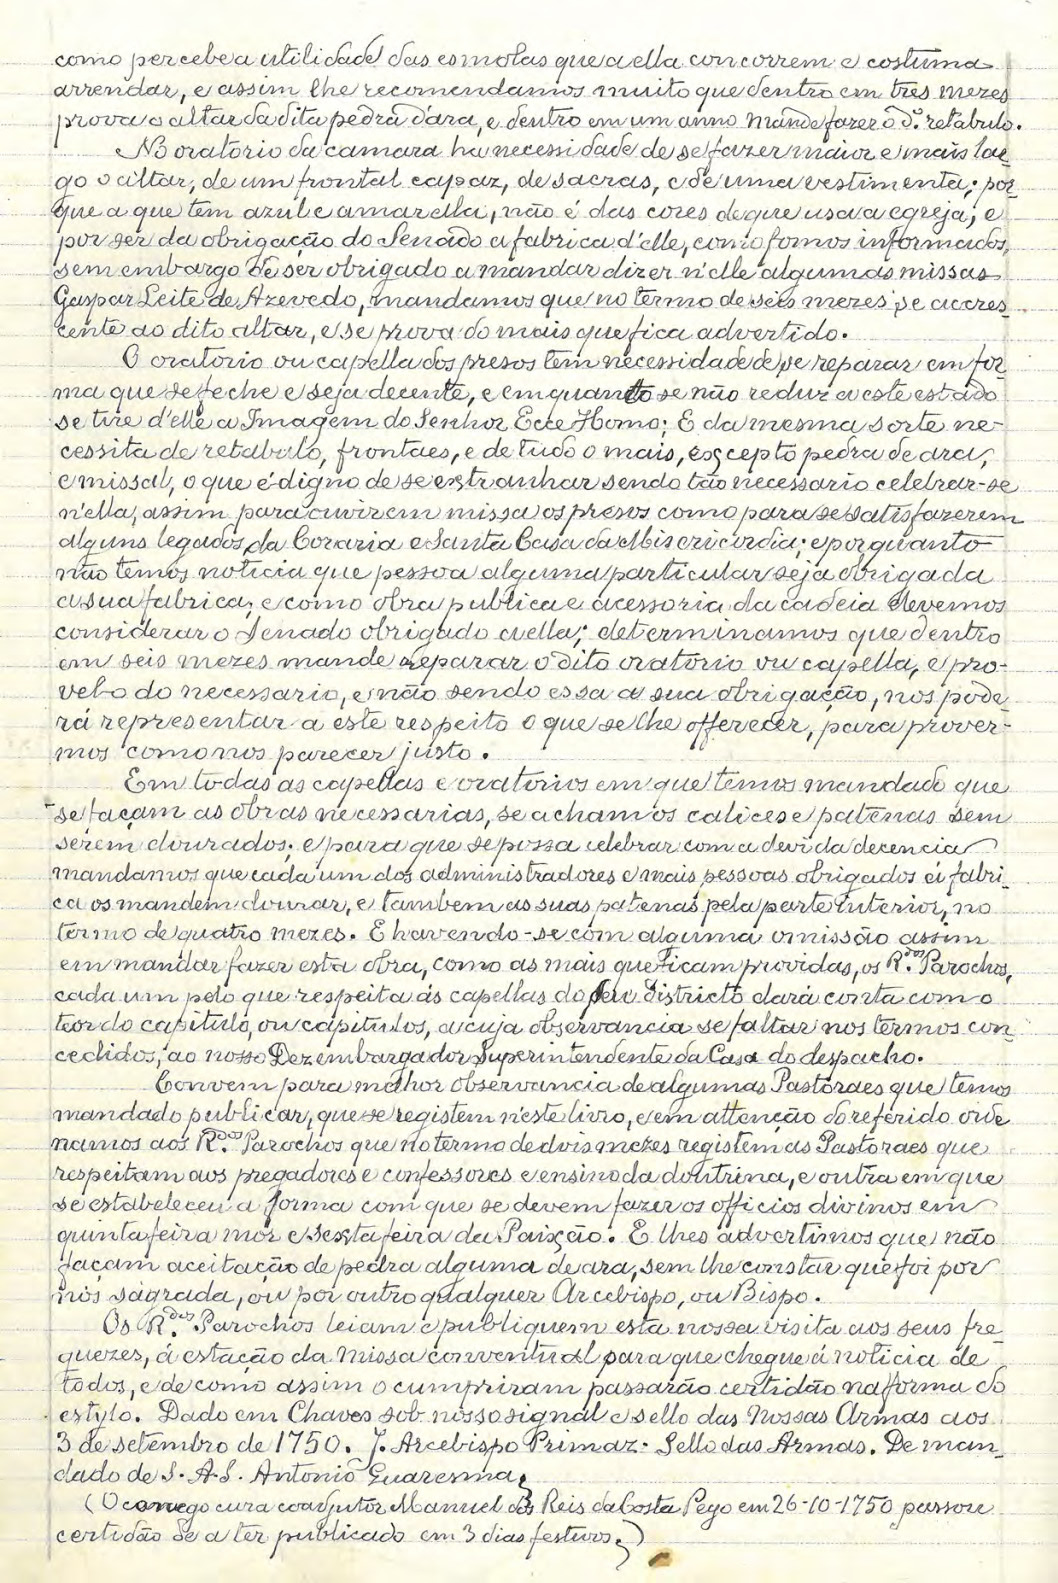 como percebe a utilidade das esmolas que a ella concorrem e costuma
arrendar, e assim lhe recomendamos muito que dentro em tres mezes
prova o altar da dita pedra d'ara, e dentro em um anno mande fazer o d.º retabulo.
No oratorio da camara ha necessidade de se fazer maior e mais lar-
go o altar, de um frontal capaz, de sacras, e de uma vestimenta; por-
que a que tem azul e amarella, não é das cores de que usa a egreja, e
por ser da obrigação do Senado a fabrica d'elle, como fomos informados,
sem embargo de ser obrigado a mandar dizer n'elle algumas missas
Gaspar Leite de Azevedo, mandamos que no termo de seis mezes se accres-
cente ao dito altar, e se prova do mais que fica advertido.
O oratorio ou capella dos presos tem necessidade de se reparar em for-
ma que se feche e seja decente, e emquanto se não reduz a este estado
se tire d'elle a Imagem do Senhor Ecce Homo; E da mesma sorte ne-
cessita de retabulo, frontaes, e de tudo o mais, excepto pedra de ara,
e missal, o que é digno de se extranhar sendo tão necessario celebrar-se
n'ella, assim para ouvirem missa os presos como para se satisfazerem
alguns legados da Coraria e Santa Casa da Misericordia; e porquanto
não temos noticia que pessoa alguma particular seja obrigada
a sua fabrica, e como obra publica e acessoria da cadeia devemos
considerar o Senado obrigado a ella; determinamos que dentro
em seis mezes mande reparar o dito oratorio ou capella, e pro-
vel-o do necessario, e não sendo essa a sua obrigação, nos pode-
rá representar a este respeito o que se lhe offerecer, para prover-
mos como nos parecer justo.
Em todas as capellas e oratorios em que temos mandado que
se façam as obras necessarias, se acham os calices e patenas sem
serem dourados; e para que se possa celebrar com a devida decencia
mandamos que cada um dos administradores e mais pessoas obrigados á fabri-
ca os mandem dourar, e tambem as suas patenas pela parte interior, no
termo de quatro mezes. E havendo-se com alguma omissão assim
em mandar fazer esta obra, como as mais que ficam providas, os R.dos Parochos,
cada um pelo que respeita ás capellas do seu districto dará conta com o
teor do capitulo, ou capitulos, a cuja observancia se faltar nos termos con-
cedidos, ao nosso Dezembargador Superintendente da Casa do despacho.
Convem para melhor observancia de algumas Pastoraes que temos
mandado publicar, que se registem n'este livro, e em attenção do referido orde-
namos aos R.dos Parochos que no termo de dois mezes registem as Pastoraes que
respeitam aos pregadores e confessores e ensino da doutrina, e outra em que
se estabeleceu a forma com que se devem fazer os officios divinos em
quinta feira mór e sexta feira da Paixão. E lhes advertimos que não
façam aceitação de pedra alguma de ara, sem lhe constar que foi por
nós sagrada, ou por outro qualquer Arcebispo, ou Bispo.
Os R.dos Parochos leiam e publiquem esta nossa visita aos seus fre-
guezes, á estação da Missa conventual para que chegue á noticia de
todos, e de como assim o cumpriram passarão certidão na forma do
estylo. Dado em Chaves sob nosso signal e sello das Nossas Armas aos
3 de setembro de 1750. J. Arcebispo Primaz. Sello das Armas. De man-
dado de S. A. S. Antonio Guaresma,
(O conego cura coadjutor Manuel dos Reis da Costa Pego em 26-10-1750 passou
certidão de a ter publicado em 3 dias festivos.)